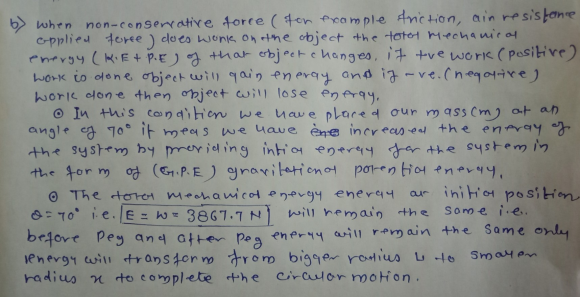 b) when non-conservative force (for example friction, air resistance
applied force) does work on the object the total mechanical
energy (K.E + P.E) of that object changes. if +ve work (positive)
work is done object will gain energy and if -ve. (negative)
work done then object will lose energy.
⊙ In this condition we have placed our mass (m) at an
angle of 70° it means we have increased the energy of
the system by providing intial energy for the system in
the form of (G.P.E) gravitational potential energy.
⊙ The total mechanical energy energy at initial position
θ = 70° i.e. E = W = 3867.7 N will remain the same i.e.
before Peg and after Peg energy will remain the same only
energy will transform from bigger radius L to smaller
radius x to complete the circular motion.